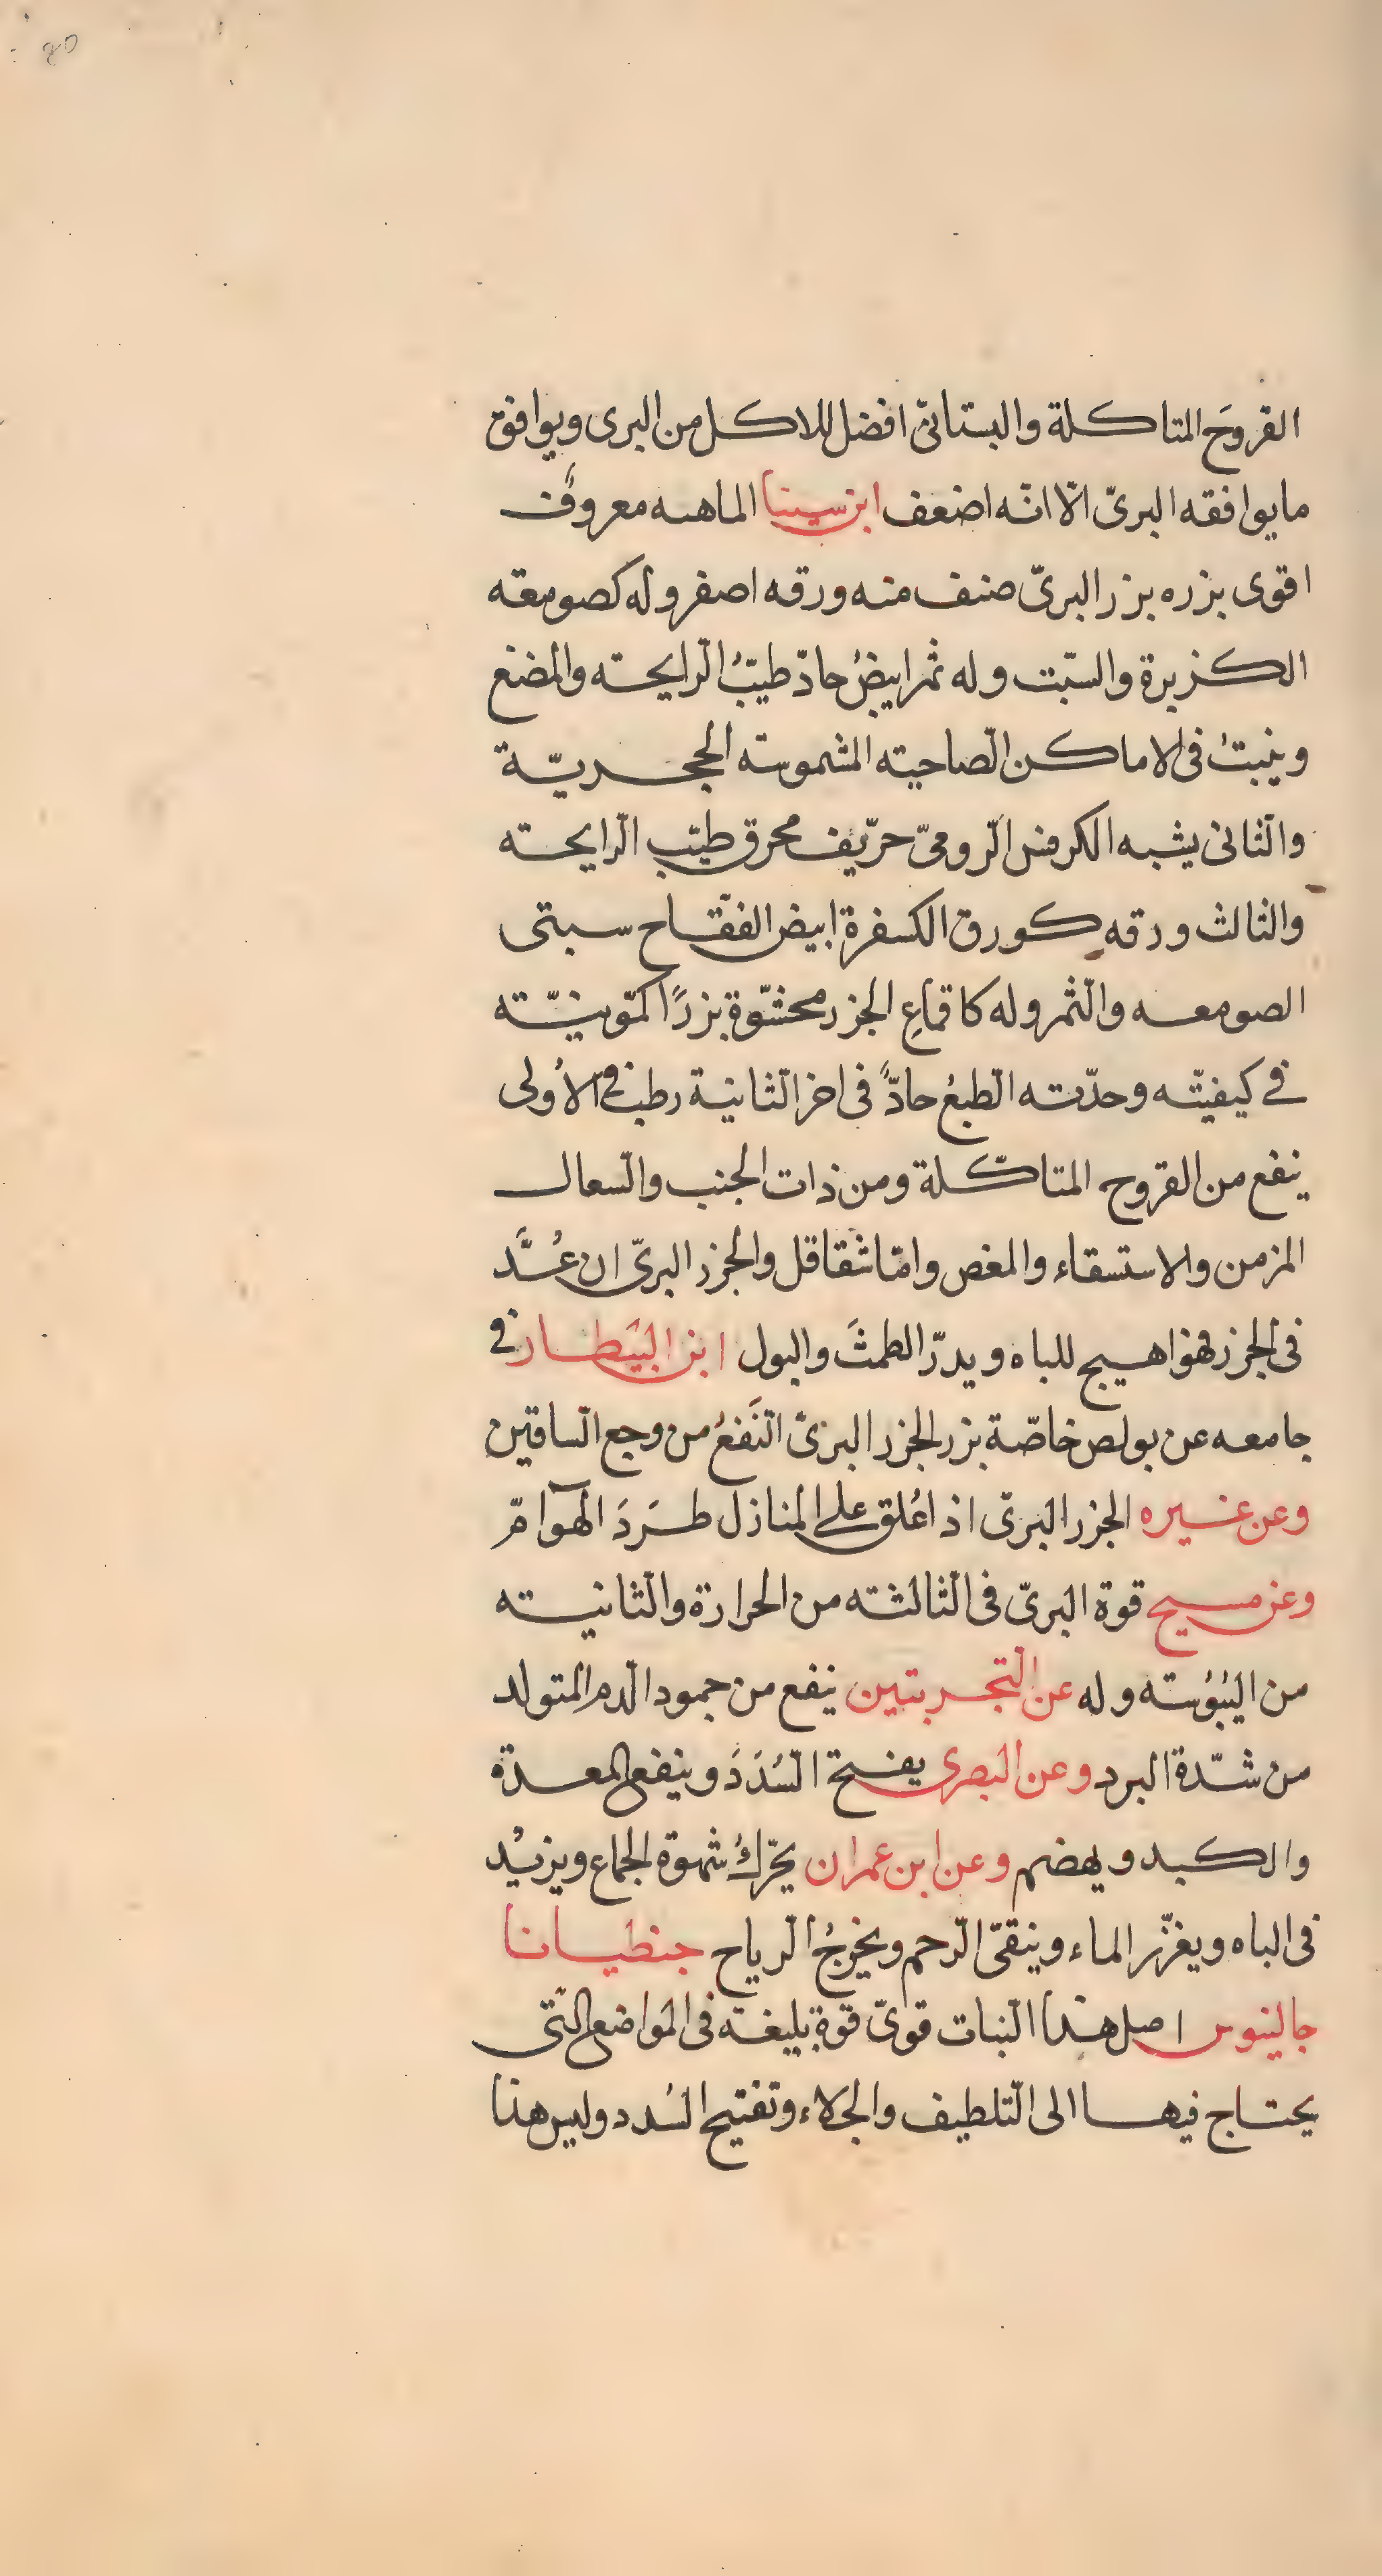 80
القروحَ المتاكلة والبستانىّ افضل للاكل من البرى ويوافق
ما يوافقه البرىّ الّا انّه اضعف ابن سينا الماهىه معروفٌ
اقوى بزره بزر البرىّ صنف منه ورقه اصفر وله كصومعه
الكزبرة والسّبت وله ثمر ابيضُ حادّ طيّبُ الرّايحته والمضغ
وينبتُ فى الاماكن الصّاحيته المشموسته الحجريّة
والثّانى يشبه الكرفس الرّومىّ حرّيف محرق طيّب الرّايحته
والثالث ورقه كورق الكسفرة ابيض الفقّاح سبتى
الصومعه والثّمر وله كاقماعِ الجزر محشّوة بزرًا كمّونيّته
فى كيفيّته وحدّته الطّبعُ حادًّ فى اخر الثّانية رطب فى الأولى
ينفع من القروح المتاكّلة ومن ذات الجنب والسّعال
المزمن والاستسقاء والمغص وامّا شقاقل والجزر البرىّ ان عُدَّ
فى الجزر فهو اهيج للباه ويدرّ الطمثَ والبول ابن البَيطار فى
جامعه عن بولص خاصّة بزر الجزر البرىّ انّنَفعُ من وجع السّاقين
وعن غيره الجزر البرىّ اذ اعُلق على المنازل طَرَدَ الهوآمّ
وعن مسيح قوة البرىّ فى الثّالثته من الحرارة والثّانيته
من اليُبُوُسته وله عن التّجربتين ينفع من جمود الدّم المتولد
من شدّة البرد وعن البصرى يفتح السُّدَدَ وينفع المعدة
والكبد ويهضم وعن ابن عمران يحرّكُ شهوة الجماع ويزيْد
فى الباه ويغزّر الماء وينقىّ الرّحم ويخرجُ الرّياح جنطيانا
جالينوس اصل هذا النّبات قوىّ قوة بليغته فى المواضع الّتى
يحتاج فيها الى التّلطيف والجلاء وتفتيح السُدد وليس هذا